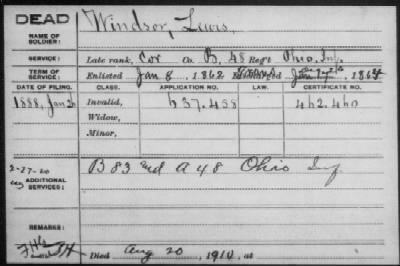 DEAD
NAME OF SOLDIER:
Windsor, Lewis.
SERVICE:
Late rank, Cor Co. B, 48 Regt Ohio Inf.
TERM OF SERVICE:
Enlisted Jan 8, 1862 Discharged Jan 17, 1864
DATE OF FILING. CLASS. APPLICATION NO. LAW. CERTIFICATE NO.
1888, Jan 26 Invalid, 637.458 462.460
Widow,
Minor,
2-27-20
ADDITIONAL SERVICES:
B 83 and A 48 Ohio Inf
REMARKS:
Died Aug 20, 1910, at